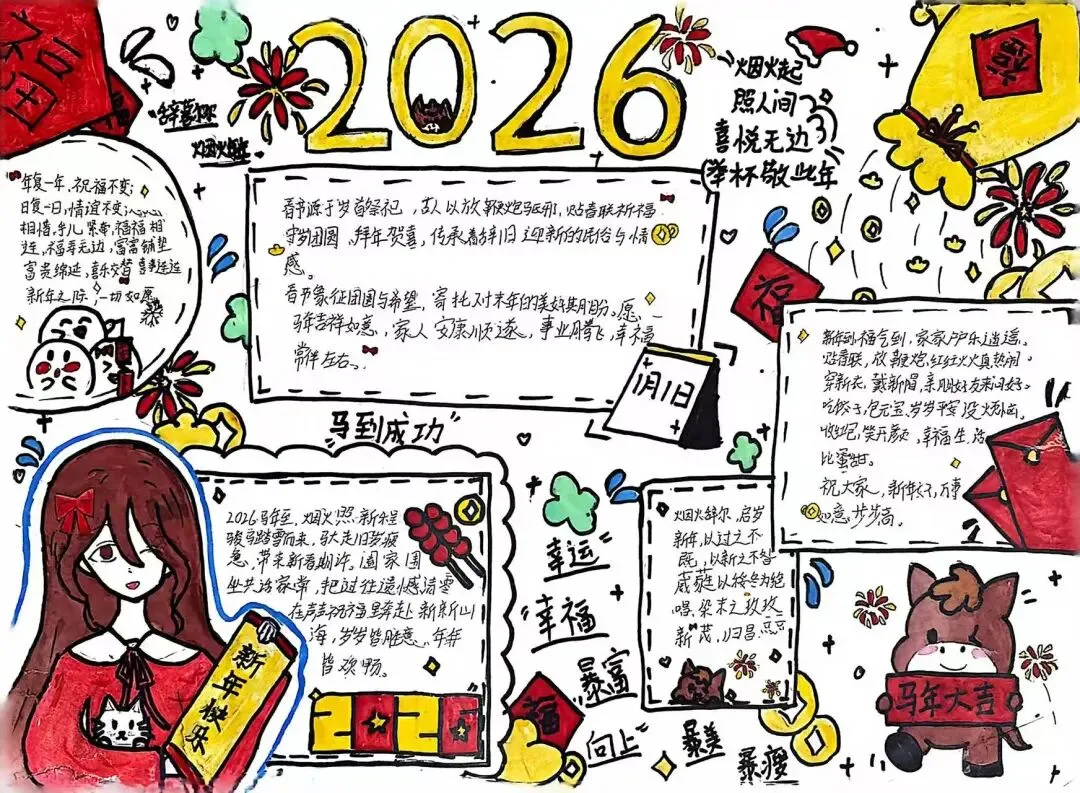 福
2026
辞暮尔尔
烟火年年
烟火起
照人间
喜悦无边
举杯敬此年
福
年复一年,祝福不变;
日复一日,情谊不变
相惜,福福相
连,福寿无边,富富铺垫
富贵绵延,喜乐交替 喜事连连
新年之际,一切如愿
春节源于岁首祭祀,古人以放鞭炮驱邪,贴春联祈福
守岁团圆,拜年贺喜,传承着辞旧迎新的民俗与情
感。
春节象征团圆与希望,寄托对来年的美好期盼。愿
马年吉祥如意,家人安康顺遂,事业腾飞,幸福
常伴左右。
1月1日
福
新年到福气到,家家户户乐逍遥。
贴春联,放鞭炮,红红火火真热闹。
穿新衣,戴新帽,亲朋好友来问好。
吃饺子,包元宝,岁岁平安没烦恼。
收红包,笑开颜,幸福生活
比蜜甜。
祝大家,新年好,万事
如意步步高。
"马到成功"
2026马年至,烟火照新程
骏马踏雪而来,驮走旧岁疲
惫,带来新春期许,阖家围
坐共话家常,把过往遗憾清零
在声声祝福里奔赴新山
海,岁岁皆胜意,年年
皆欢畅。
2026
新年快乐
幸运
幸福
暴富
向上
暴美
暴瘦
福
烟火辞尔,启岁
新年,以过之不
以新之不
以终为绝
唱,染末之玫玫
新茂,归昌
马年大吉